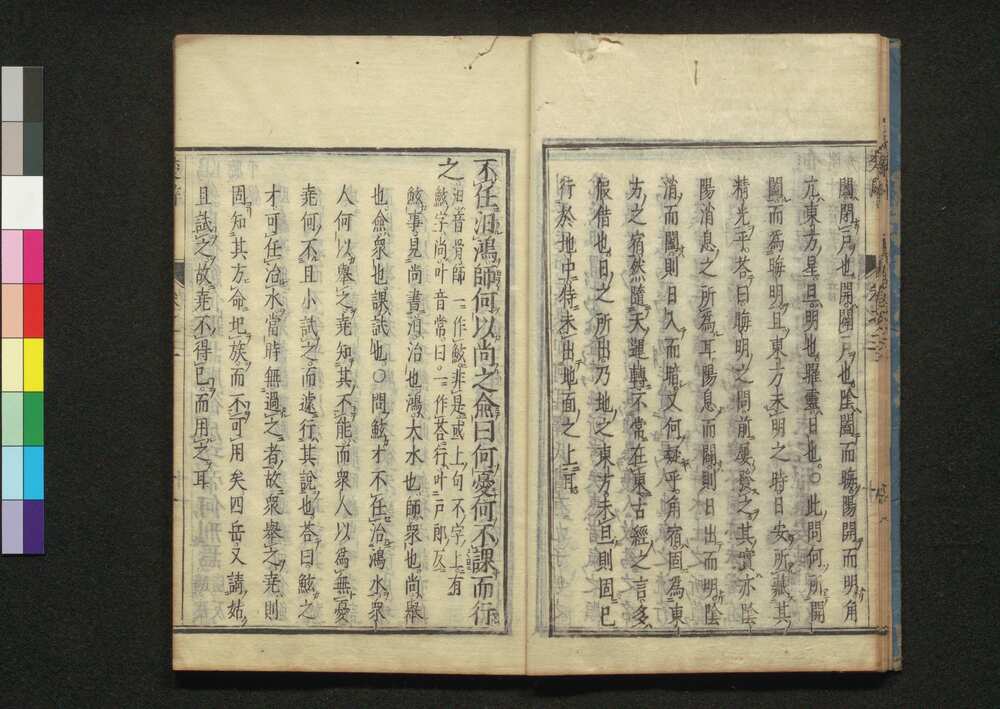 闔閉戶也開闢戶也陰闔而晦陽開而明角
亢東方星旦明也曜靈日也○此問何所開
闔而爲晦明且東方未明之時日安所藏其
精光乎答曰晦明之問前屢發之其實亦陰
陽消息之所爲耳陽息而闢則日出而明陰
消而闔則日入而暗又何疑乎角宿固爲東
方之宿然隨天運轉不常在東古經之言多
假借也日之所出乃地之東方未旦則固已
行於地中特未出地面之上耳
不任汩鴻師何以尚之僉曰何憂何不課而行
之
汩音骨師一作鮌非是或上句不字上有
鮌字尚叶音常曰一作答行叶戶郎反
鮌事見尚書汩治也鴻大水也師衆也尚舉
也僉衆也課試也○問鮌才不任治鴻水衆
人何以舉之堯知其不能而衆人以爲無憂
堯何不且小試之而遽行其說也答曰鮌之
才可任治水當時無過之者故衆舉之堯則
固知其方命圮族而不可用矣四岳又請姑
且試之故堯不得已而用之耳